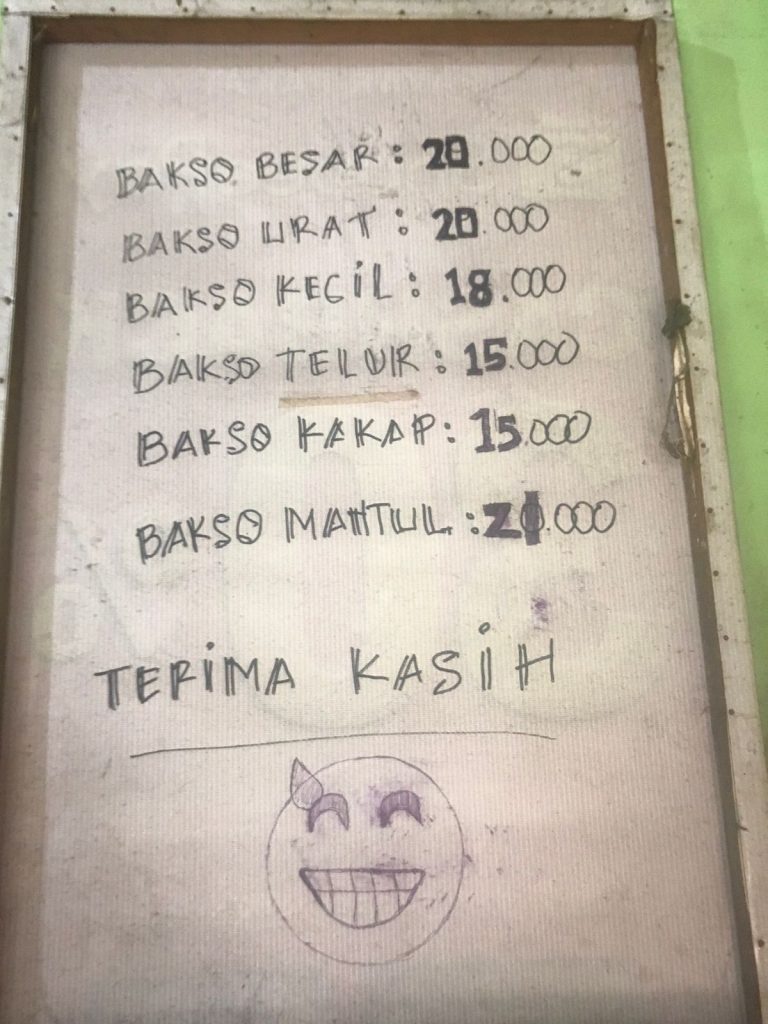 BAKSO BESAR : 20.000
BAKSO URAT : 20.000
BAKSO KECIL : 18.000
BAKSO TELUR : 15.000
BAKSO KAKAP : 15.000
BAKSO MANTUL :
TERIMA KASIH